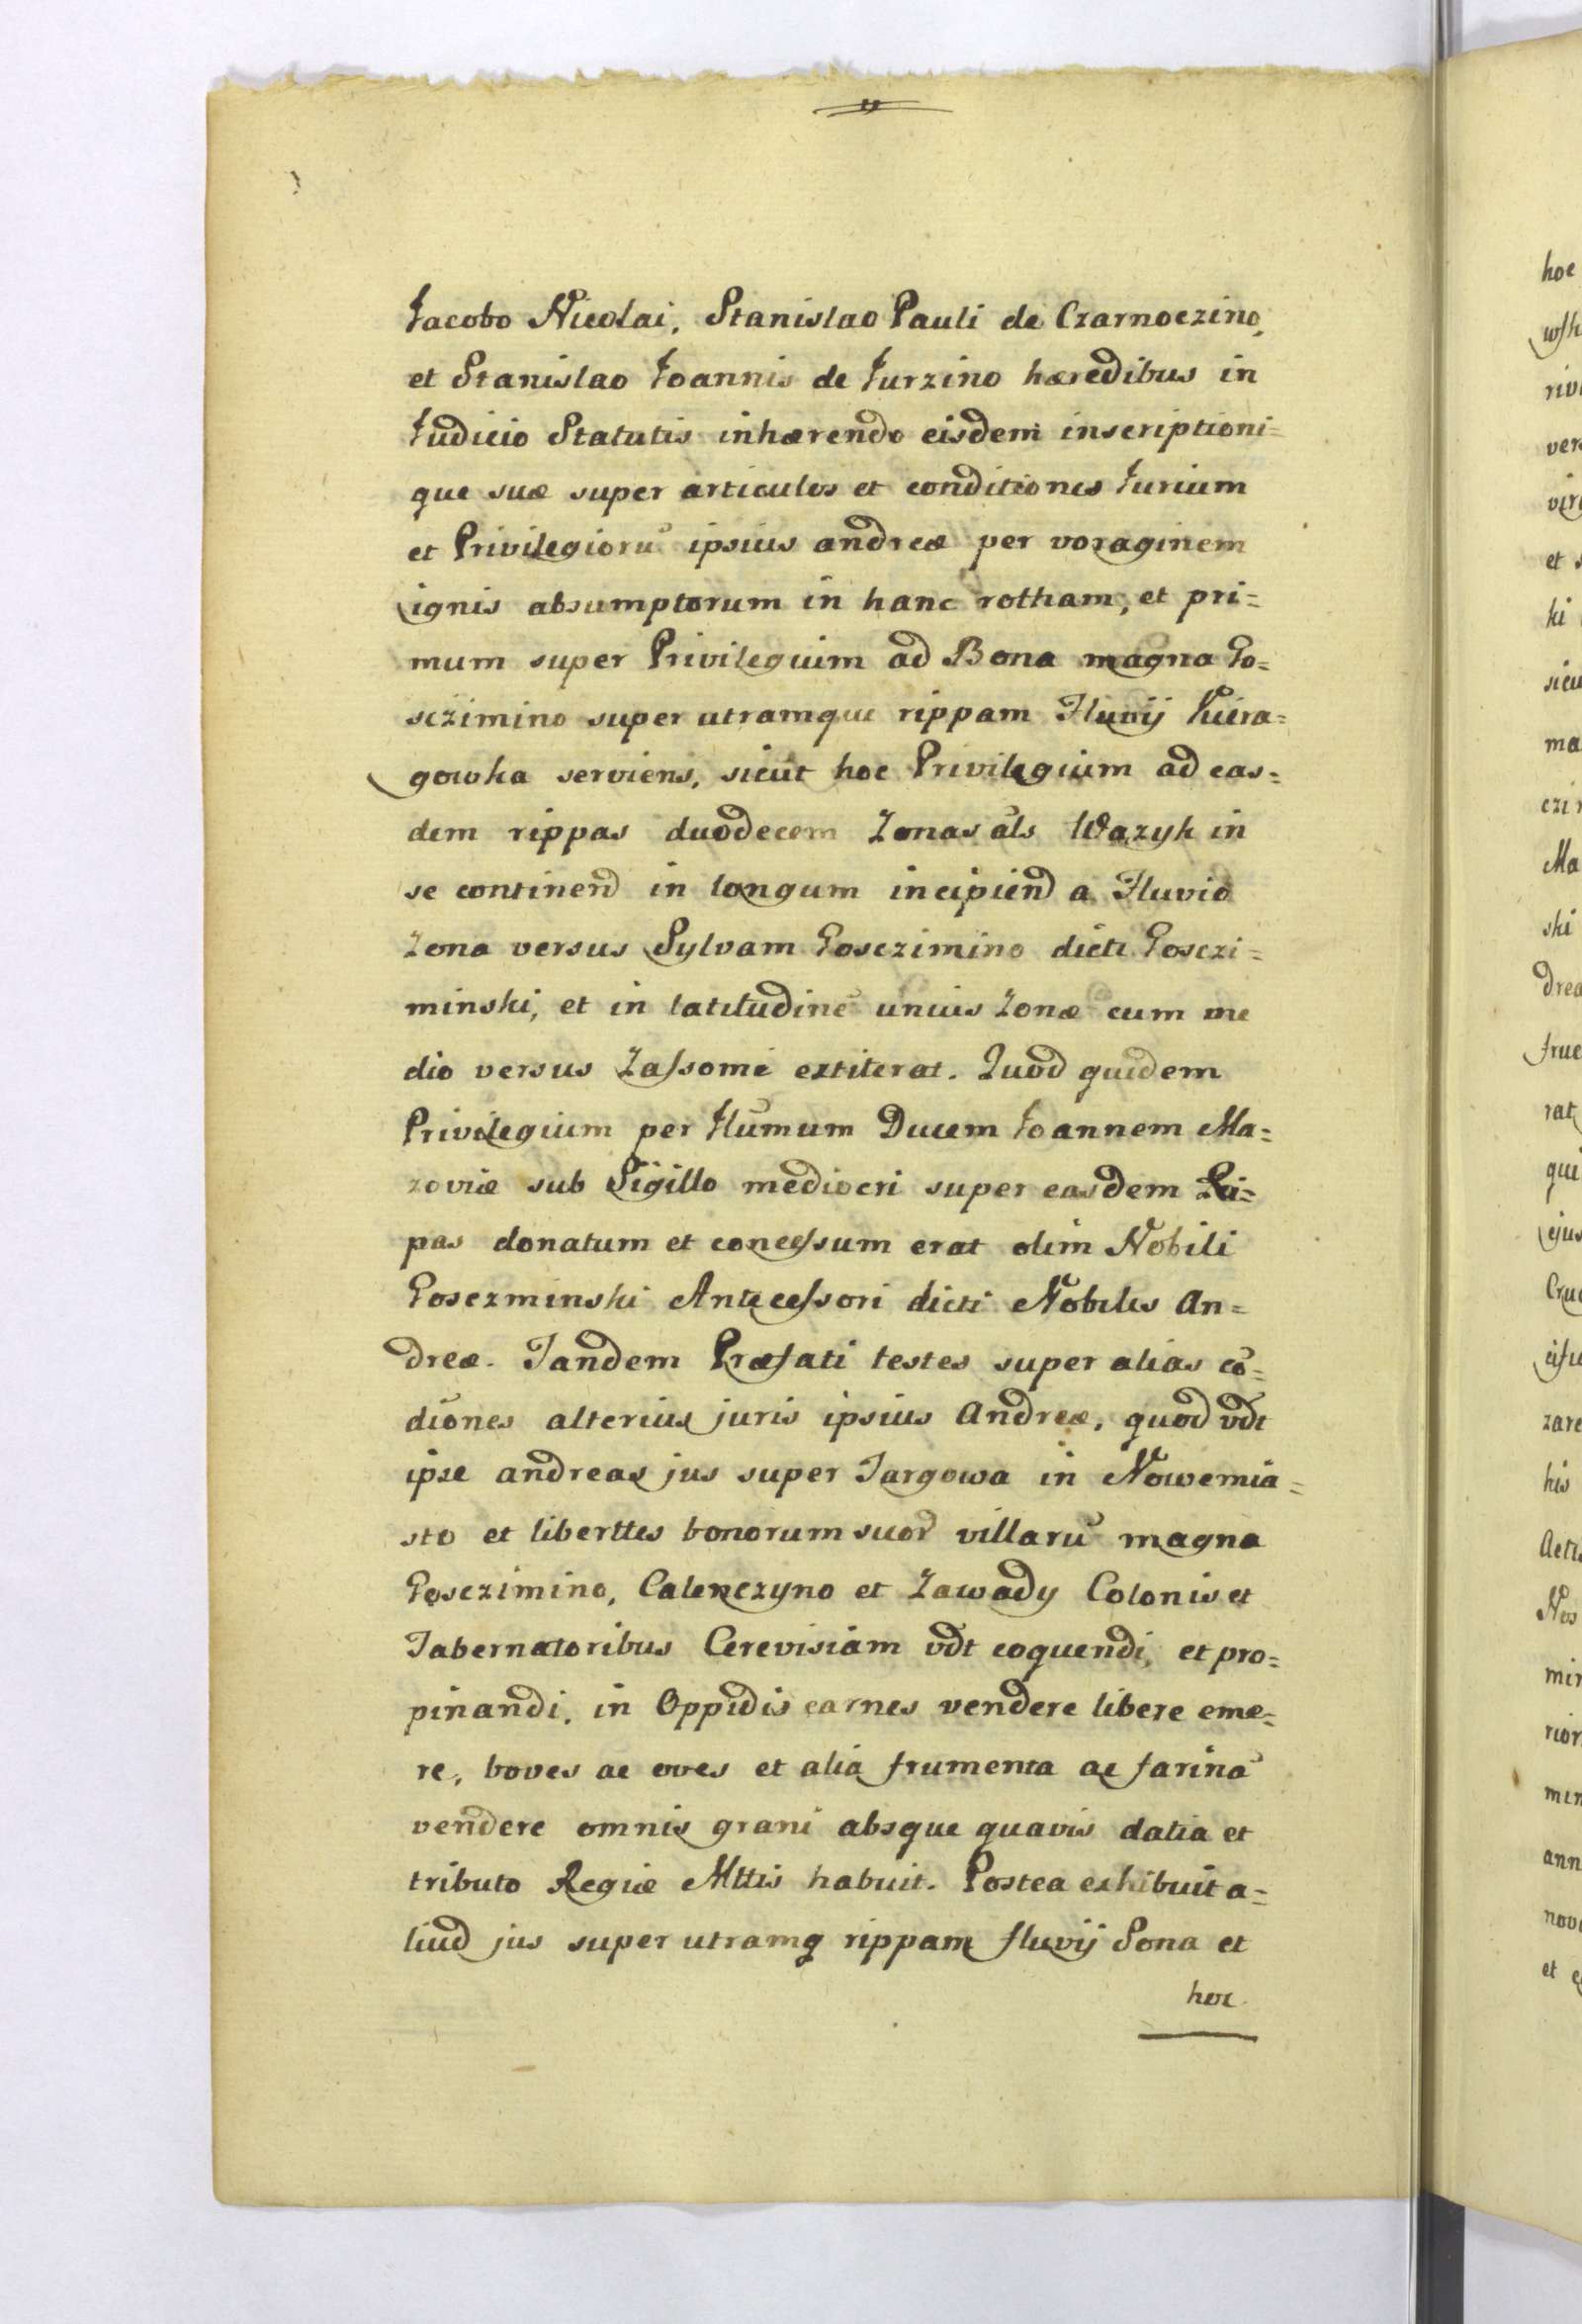 Jacobo Nicolai, Stanislao Pauli de Czarnoczino,
et Stanislao Joannis de Jurzino hæredibus in
Judicio Statutis inhærendo eisdem inscriptioni=
que suæ super articulos et conditiones Jurium
et Privilegiorū ipsius andreæ per voraginem
ignis absumptorum in hanc rotham, et pri=
mum super Privilegium ad Bona magna Go=
sczimino super utramque rippam Fluvij
gowka serviens, sicut hoc Privilegium ad eas=
dem rippas duodecem Zonas als Wazyk in
se continend in longum incipiend a Fluvio
Zona versus Sylvam Gosczimino dicti Gosczi=
minski, et in latitudine unius Zonæ cum me
dio versus Zassome extiterat. Quod quidem
Privilegium per Illumum Ducem Joannem Ma=
zoviæ sub Sigillo mediocri super easdem Ri=
pas donatum et concessum erat olim Nobili
Gosczminski Antecessori dicti Nobilis An=
dreæ. Tandem Præfati testes super alias cō=
diōnes alterius juris ipsius Andreæ, quod vdt
ipse andreas jus super Targowa in Nowemia=
sto et liberttes bonorum suor villarū magna
Gosczimino, Calenczyno et Zawady Colonis et
Tabernatoribus Cerevisiam vdt coquendi, et pro=
pinandi, in Oppidis carnes vendere libere eme=
re, boves ac oves et alia frumenta ac farinā
vendere omnis grani absque quavis datia et
tributo Regiæ Mttis habuit. Postea exhibuit a=
liud jus super utramq rippam fluvij Sona et
hoc